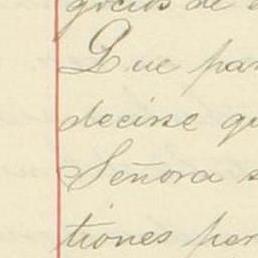 gocios de
Que par
decirse qu
Señora s
tiones per